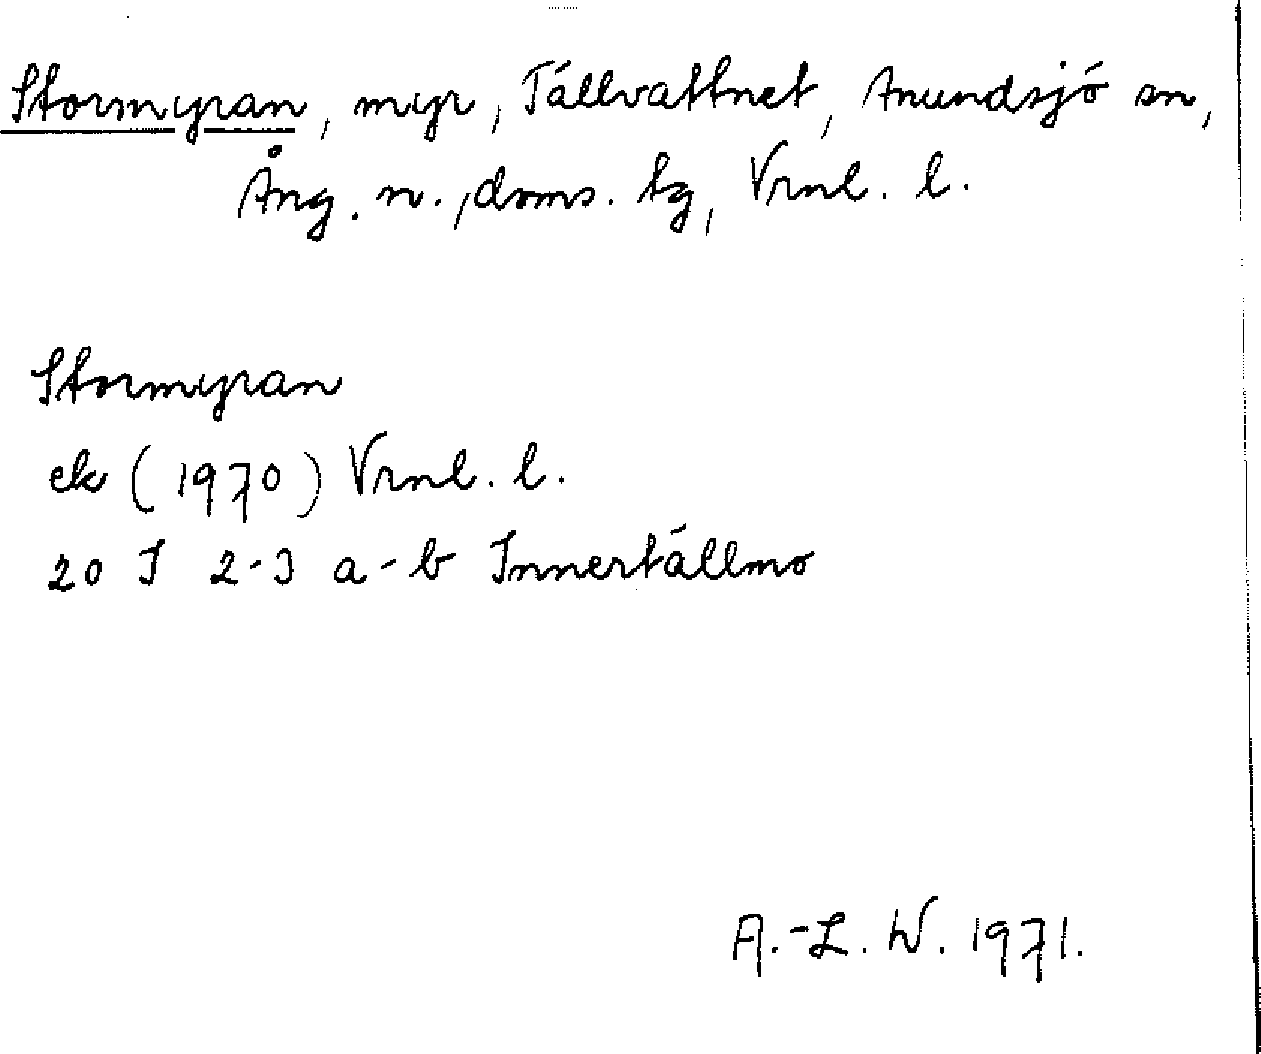 Stormyran, myr, Tällvattnet, Anundsjö sn,
Ång. n., doms. tg, Vrnl. l.
Stormyran
ek (1970) Vrnl. l.
20 I 2-3 a-b Innertällmo
A.-L. W. 1971.